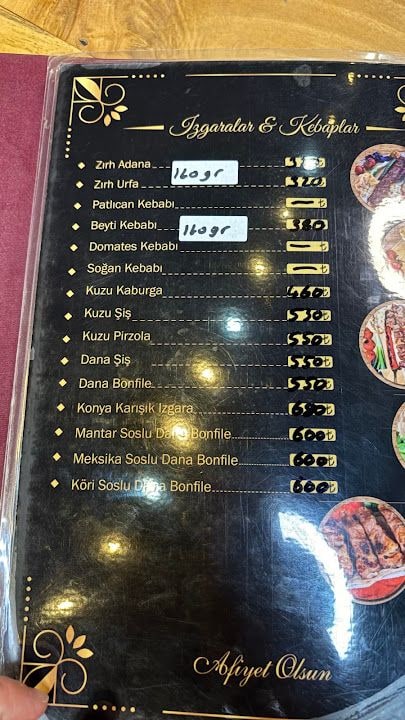 Izgaralar & Kebaplar
Zırh Adana
160gr
Zırh Urfa 320
Patlıcan Kebabı — ₺
Beyti Kebabı 380
160gr
Domates Kebabı — ₺
Soğan Kebabı — ₺
Kuzu Kaburga 460 ₺
Kuzu Şiş 530 ₺
Kuzu Pirzola 550 ₺
Dana Şiş 550 ₺
Dana Bonfile 550 ₺
Konya Karışık Izgara 680 ₺
Mantar Soslu Dana Bonfile 600 ₺
Meksika Soslu Dana Bonfile 600 ₺
Köri Soslu Dana Bonfile 600 ₺
Afiyet Olsun